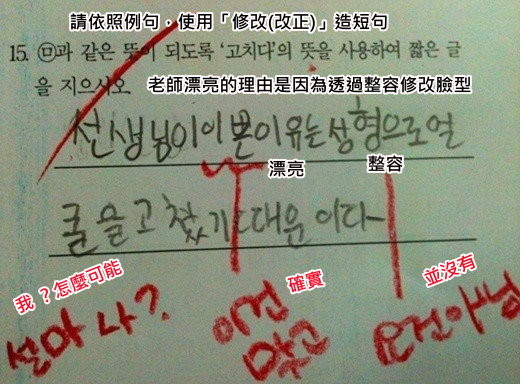 請依照例句，使用「修改(改正)」造短句
15. ㉤과 같은 뜻이 되도록 ‘고치다’의 뜻을 사용하여 짧은 글
을 지으시오
老師漂亮的理由是因為透過整容修改臉型
선생님이이쁜이유는성형으로얼
漂亮
整容
굴을고쳤기때문이다
我？怎麼可能
確實
並沒有
설마 나?
이건
맞고
요건아님